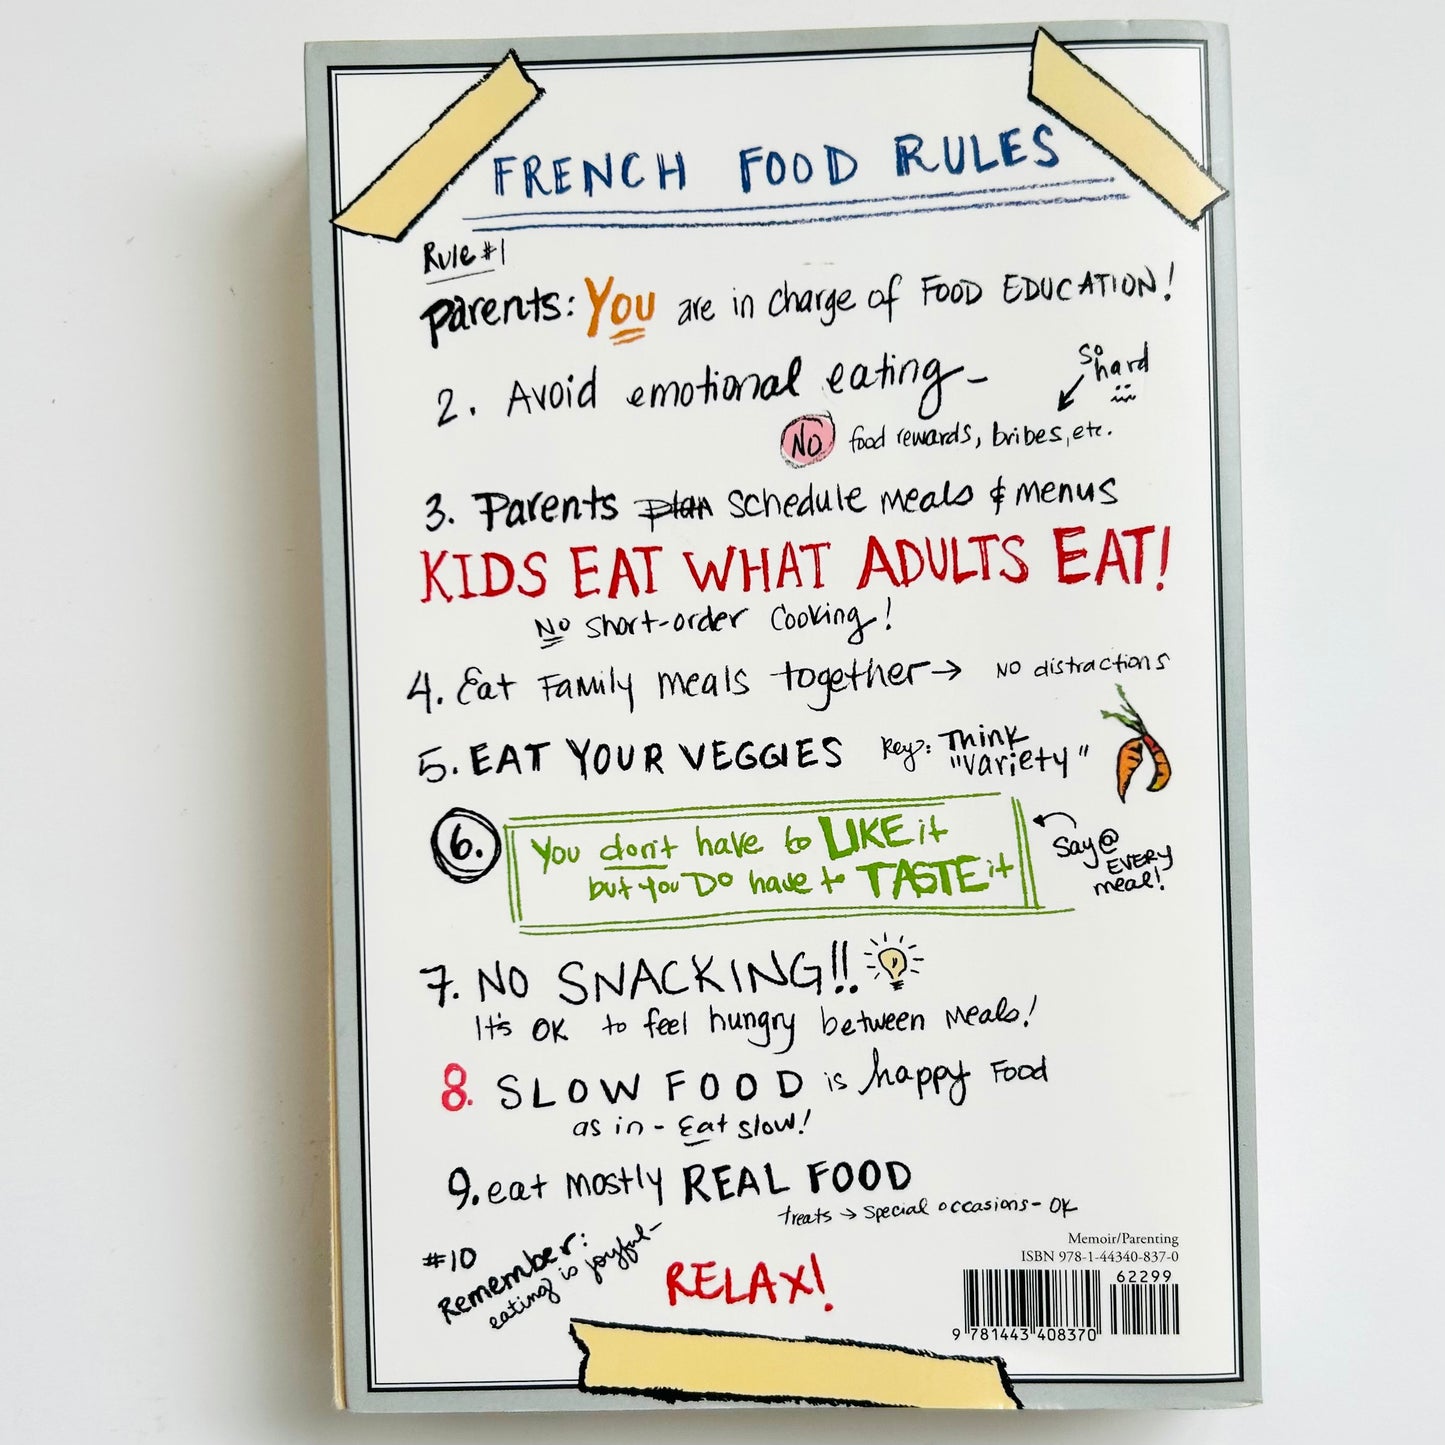 FRENCH FOOD RULES
Rule #1
Parents: You are in charge of FOOD EDUCATION!
2. Avoid emotional eating-
So hard
NO food rewards, bribes, etc.
3. Parents plan schedule meals & menus
KIDS EAT WHAT ADULTS EAT!
NO short-order cooking!
4. Eat Family meals together → NO distractions
5. EAT YOUR VEGGIES Key: Think
"variety"
6. You don't have to LIKE it
but you DO have to TASTE it
Say @
EVERY
meal!
7. NO SNACKING!!
It's OK to feel hungry between meals!
8. SLOW FOOD is happy Food
as in - Eat slow!
9. eat mostly REAL FOOD
treats → special occasions - OK
#10
Remember:
eating is joyful-
RELAX!
Memoir/Parenting
ISBN 978-1-44340-837-0
62299
9 781443 408370